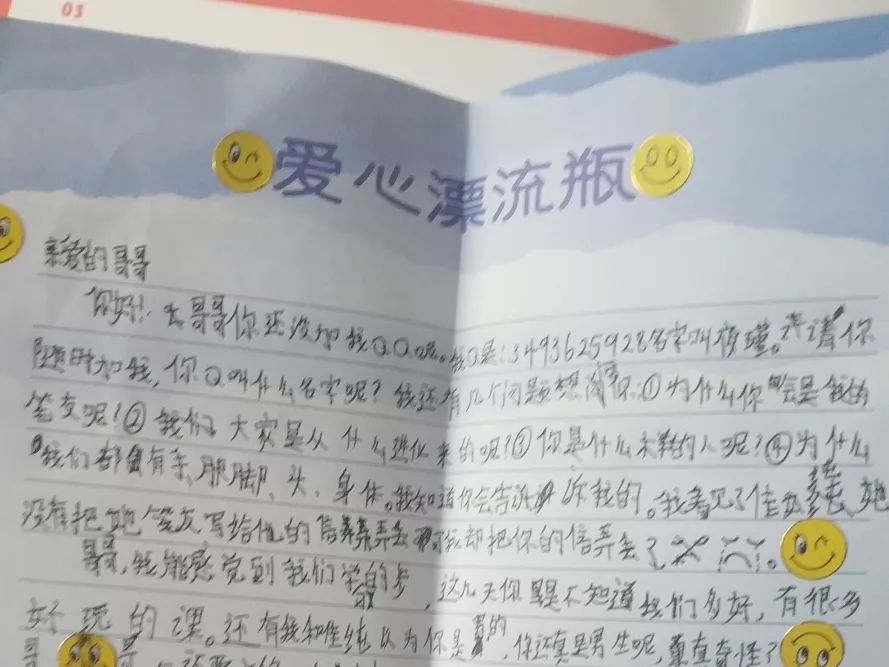 03
爱心漂流瓶
亲爱的哥哥
你好!哥哥你还没加我QQ呢。我Q是:3493625928名字叫 。请你
随时加我,你Q叫什么名字呢?我还有几个问题想 你:①为什么你会是我的
笔友呢?②我们大家是从什么进化来的呢?③你是什么 的人呢?④为什么
我们都有手、脚、头、身体。我知道你会告诉我的。我看见了佳 她
没有把她笔友写给他的信弄丢 我却把你的信弄丢了
哥哥,我能感觉到我们 的 ,这几天你是不知道我们多好,有很多
好玩的课。还有我和佳 以为你是 的,你还真是男生呢,真奇怪?